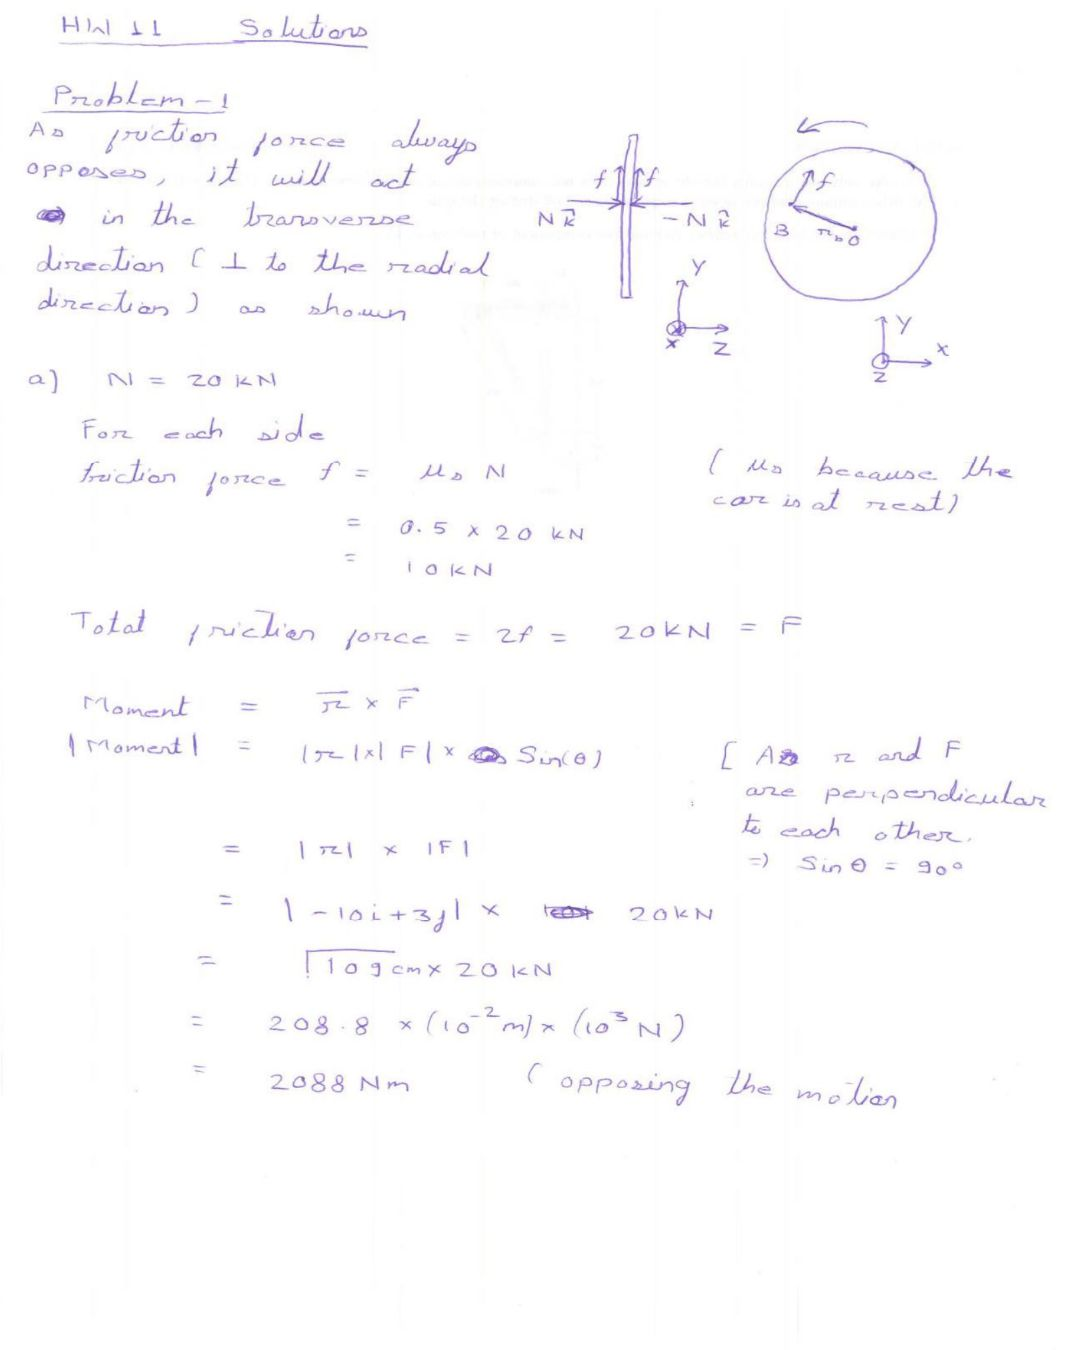 HW 11 Solutions
Problem - 1
As friction force always
opposes, it will act
in the transverse
direction ( ⊥ to the radial
direction ) as shown
f f
N k̂ - N k̂
Y
X Z
f
B r_b O
Y
X
Z
a) N = 20 KN
For each side
friction force f = μs N ( μs because the
car is at rest)
= 0.5 × 20 KN
= 10 KN
Total friction force = 2f = 20KN = F
Moment = r⃗ × F⃗
|Moment| = |r|×|F|× Sin(θ) [ As r and F
are perpendicular
to each other.
=> Sin θ = 90°
= |r| × |F|
= |-10i+3j| × 20KN
= √109 cm × 20 KN
= 208.8 × (10⁻² m) × (10³ N)
= 2088 Nm ( opposing the motion